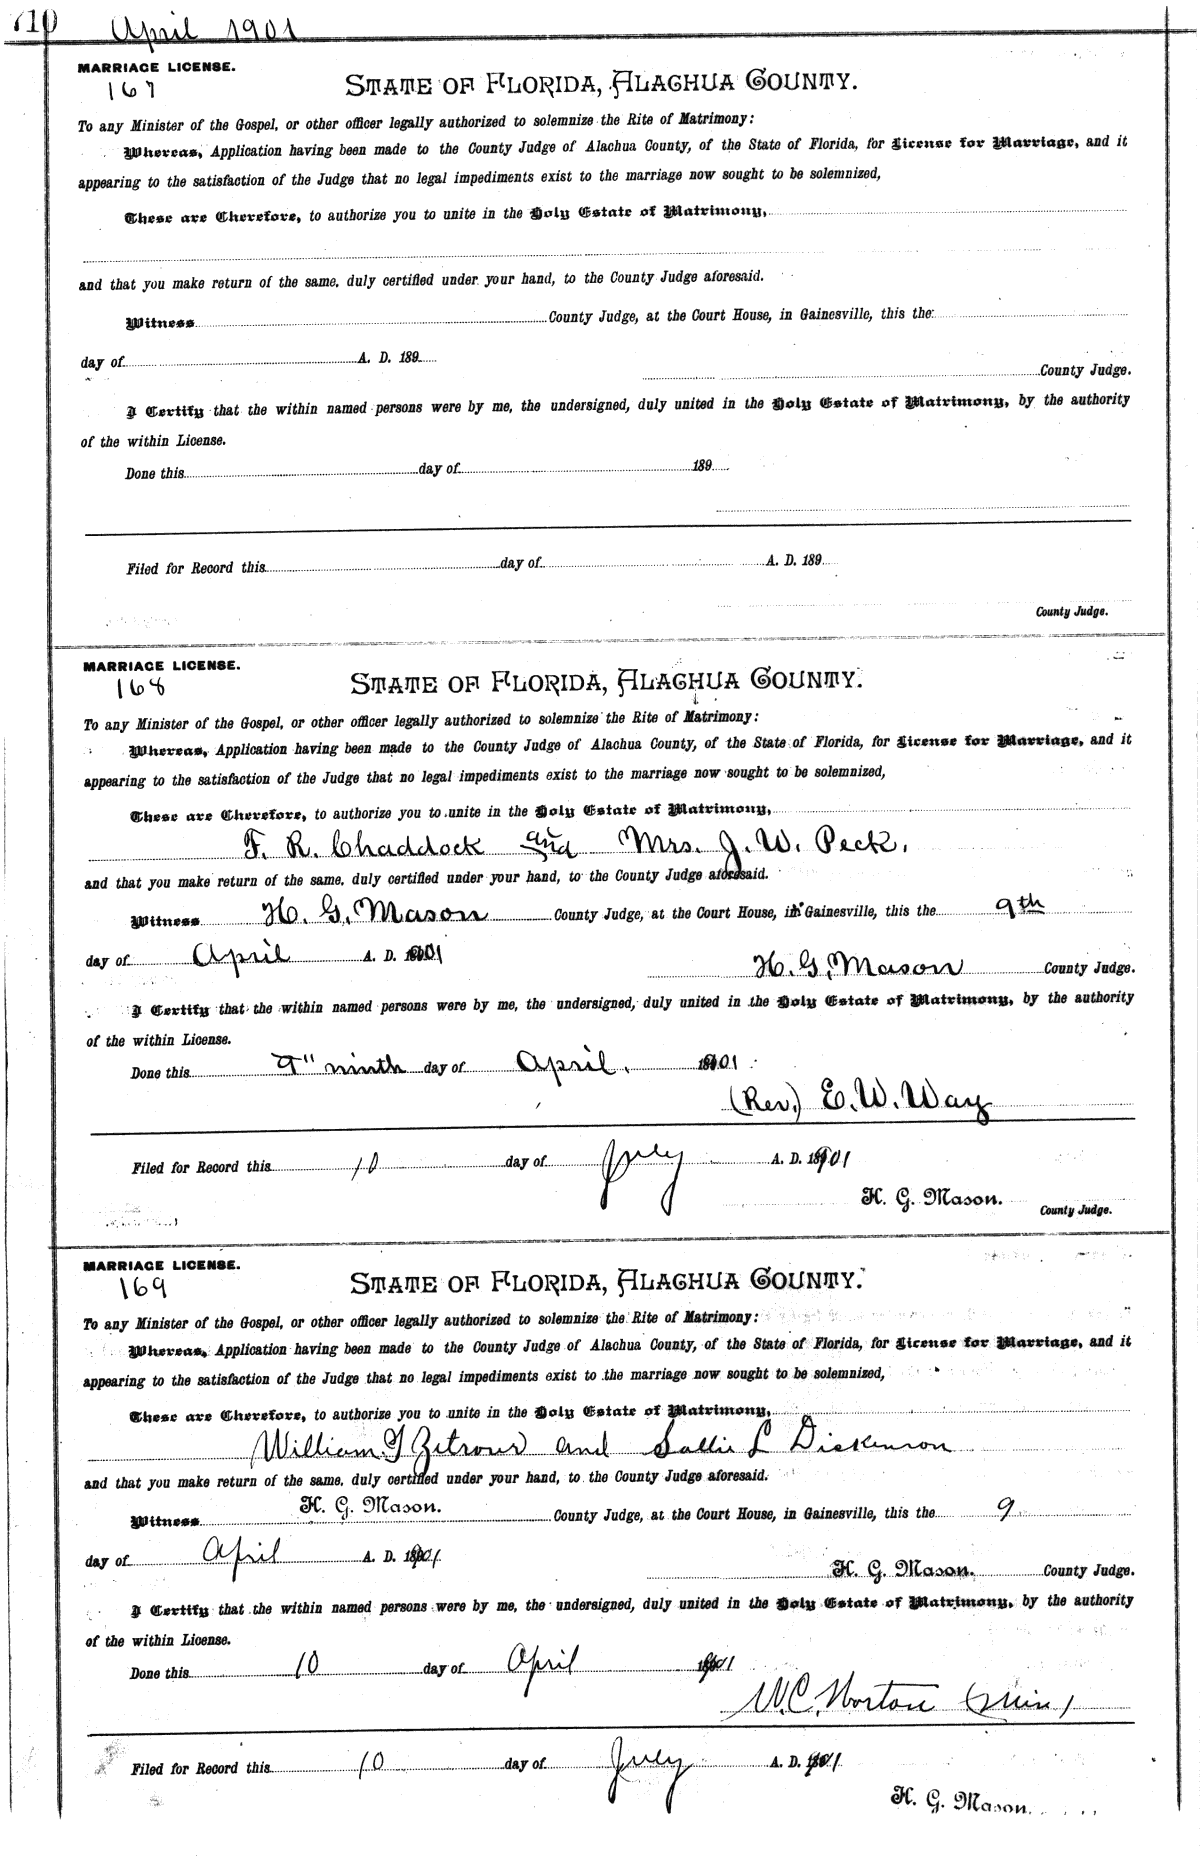 710 April 1901
MARRIAGE LICENSE.
167
STATE OF FLORIDA, ALACHUA COUNTY.
To any Minister of the Gospel, or other officer legally authorized to solemnize the Rite of Matrimony:
Whereas, Application having been made to the County Judge of Alachua County, of the State of Florida, for License for Marriage, and it
appearing to the satisfaction of the Judge that no legal impediments exist to the marriage now sought to be solemnized,
These are Therefore, to authorize you to unite in the Holy Estate of Matrimony,
and that you make return of the same, duly certified under your hand, to the County Judge aforesaid.
Witness County Judge, at the Court House, in Gainesville, this the
day of A. D. 189
County Judge.
I Certify that the within named persons were by me, the undersigned, duly united in the Holy Estate of Matrimony, by the authority
of the within License.
Done this day of 189
Filed for Record this day of A. D. 189
County Judge.
MARRIAGE LICENSE.
168
STATE OF FLORIDA, ALACHUA COUNTY.
To any Minister of the Gospel, or other officer legally authorized to solemnize the Rite of Matrimony:
Whereas, Application having been made to the County Judge of Alachua County, of the State of Florida, for License for Marriage, and it
appearing to the satisfaction of the Judge that no legal impediments exist to the marriage now sought to be solemnized,
These are Therefore, to authorize you to unite in the Holy Estate of Matrimony,
F. R. Chaddock and Mrs. J. W. Peck.
and that you make return of the same, duly certified under your hand, to the County Judge aforesaid.
Witness H. G. Mason County Judge, at the Court House, in Gainesville, this the 9th
day of April A. D. 1901
H. G. Mason County Judge.
I Certify that the within named persons were by me, the undersigned, duly united in the Holy Estate of Matrimony, by the authority
of the within License.
Done this 9" ninth day of April. 1901
(Rev.) E. W. Way
Filed for Record this 10 day of July A. D. 1901
H. G. Mason.
County Judge.
MARRIAGE LICENSE.
169
STATE OF FLORIDA, ALACHUA COUNTY.
To any Minister of the Gospel, or other officer legally authorized to solemnize the Rite of Matrimony:
Whereas, Application having been made to the County Judge of Alachua County, of the State of Florida, for License for Marriage, and it
appearing to the satisfaction of the Judge that no legal impediments exist to the marriage now sought to be solemnized,
These are Therefore, to authorize you to unite in the Holy Estate of Matrimony,
William Zetrour and Sallie L Dickenson
and that you make return of the same, duly certified under your hand, to the County Judge aforesaid.
Witness H. G. Mason. County Judge, at the Court House, in Gainesville, this the 9
day of April A. D. 1901
H. G. Mason. County Judge.
I Certify that the within named persons were by me, the undersigned, duly united in the Holy Estate of Matrimony, by the authority
of the within License.
Done this 10 day of April 1901
W. C. Norton (Min)
Filed for Record this 10 day of July A. D. 1901
H. G. Mason.